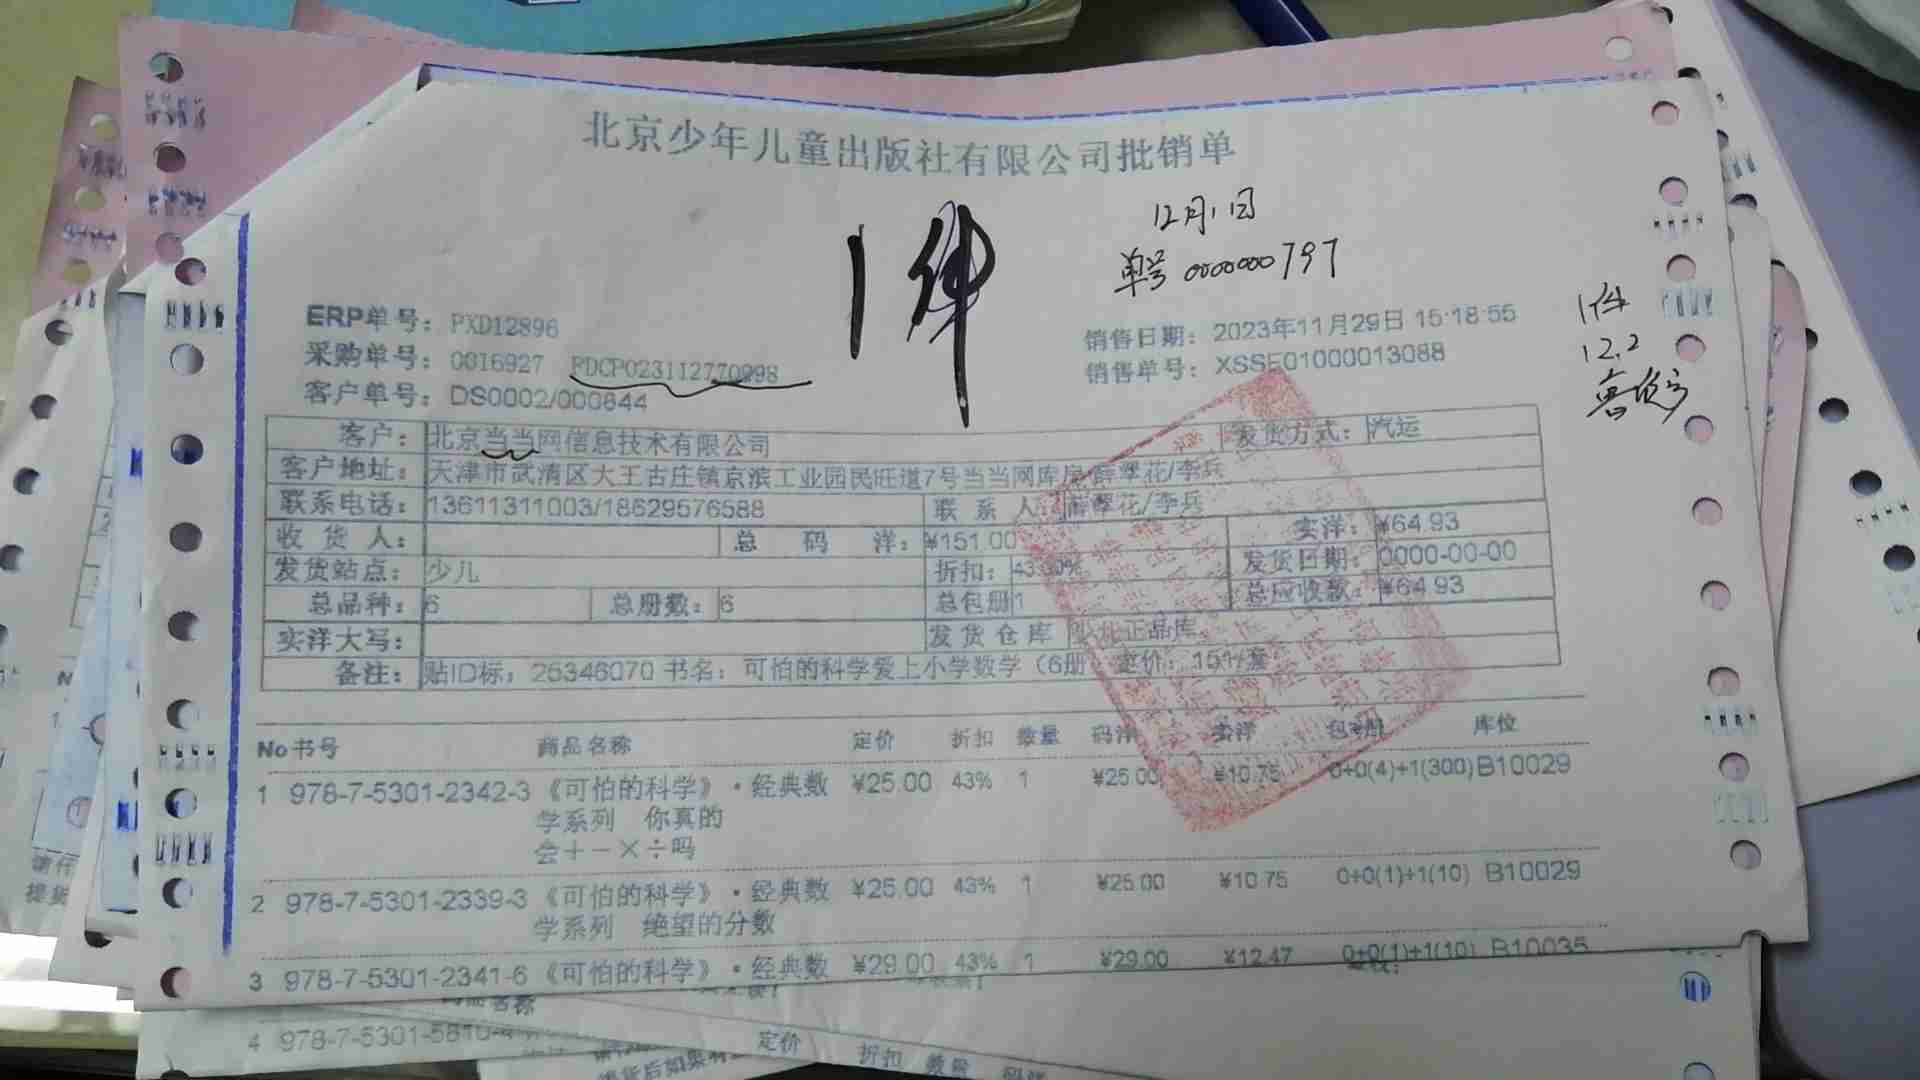 北京少年儿童出版社有限公司批销单
12月1日
1件
单号 0000000797
ERP单号: PXD12896
销售日期: 2023年11月29日 15:18:55
1件
采购单号: 0016927 PDCP023112770998
销售单号: XSSE01000013088
12.2
客户单号: DS0002/000844
客户: 北京当当网信息技术有限公司 发货方式: 汽运
客户地址: 天津市武清区大王古庄镇京滨工业园民旺道7号当当网库房 薛翠花/李兵
联系电话: 13611311003/18629576588 联系人: 薛翠花/李兵
收货人: 总码洋: ¥151.00 实洋: ¥64.93
发货站点: 少儿 折扣: 43.00% 发货日期: 0000-00-00
总品种: 6 总册数: 6 总包册 1 总应收款: ¥64.93
实洋大写: 发货仓库 少儿正品库
备注: 贴ID标, 25346070 书名: 可怕的科学爱上小学数学 (6册) 定价: 151/套
No 书号 商品名称 定价 折扣 数量 码洋 实洋 包册 库位
1 978-7-5301-2342-3 《可怕的科学》·经典数 ¥25.00 43% 1 ¥25.00 ¥10.75 0+0(4)+1(300) B10029
学系列 你真的
会+-×÷吗
2 978-7-5301-2339-3 《可怕的科学》·经典数 ¥25.00 43% 1 ¥25.00 ¥10.75 0+0(1)+1(10) B10029
学系列 绝望的分数
3 978-7-5301-2341-6 《可怕的科学》·经典数 ¥29.00 43% 1 ¥29.00 ¥12.47 0+0(1)+1(10) B10035
商品名称
4 978-7-5301-5810-4
定价 折扣 数量 码洋